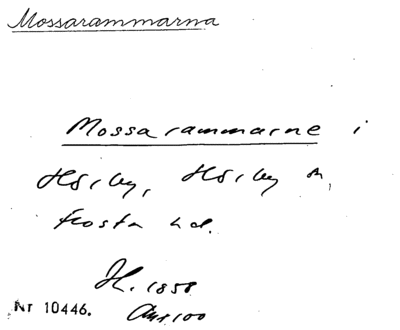 Mossarammarna
Mossarammarne i
Hörby, Hörby sn,
Frosta hd.
H. 1858
Nr 10446.